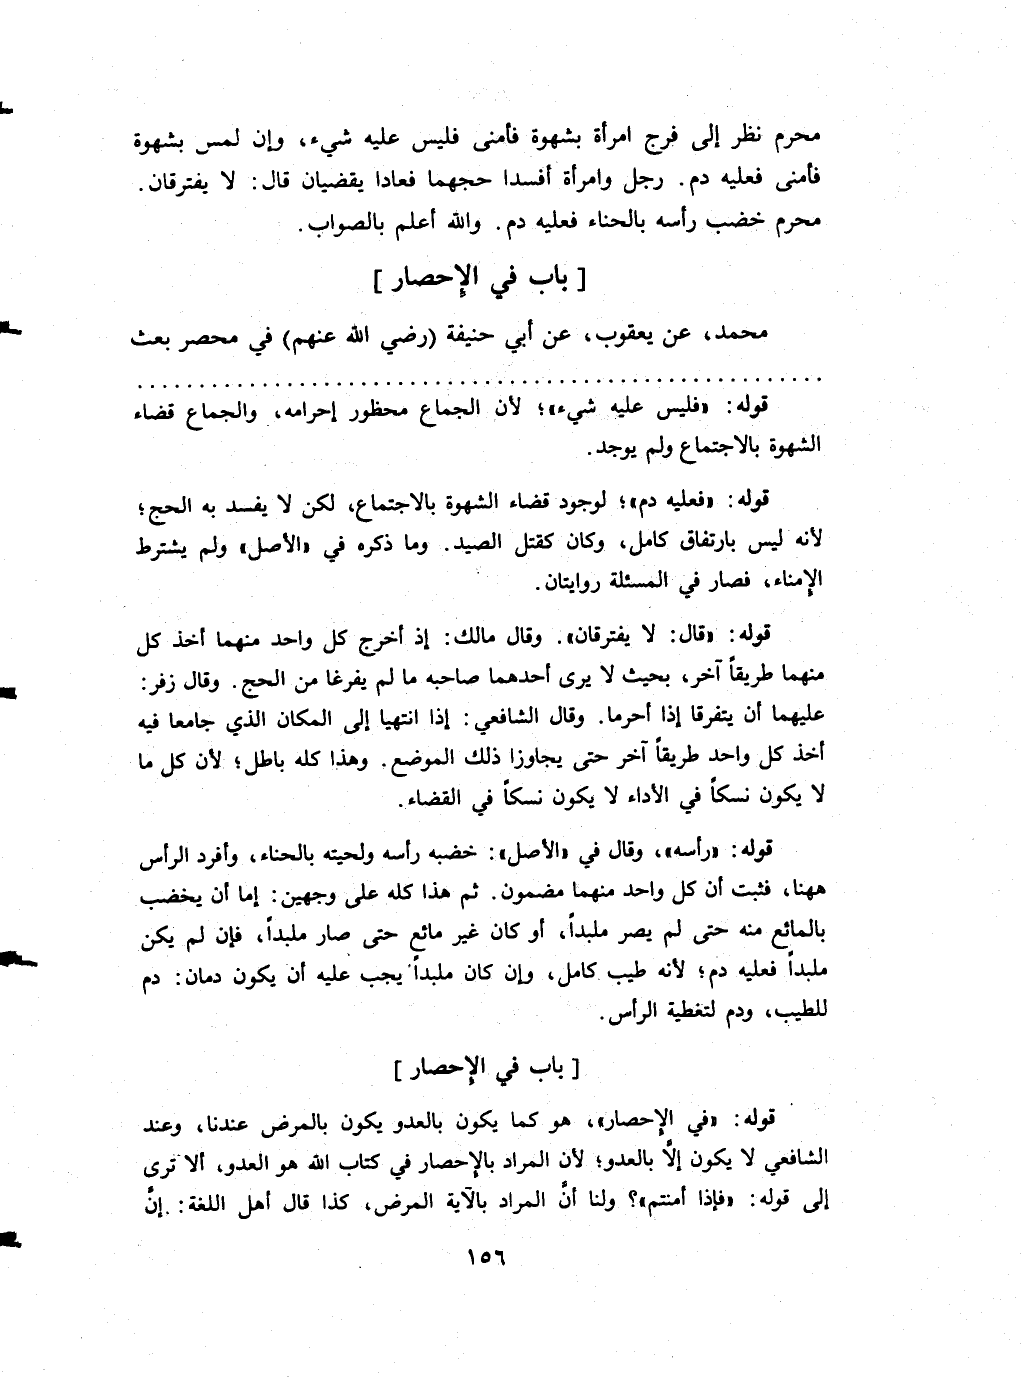 محرم نظر إلى فرج امرأة بشهوة فأمنى فليس عليه شيء، وإن لمس بشهوة
فأمنى فعليه دم. رجل وامرأة أفسدا حجهما فعادا يقضيان قال: لا يفترقان.
محرم خضب رأسه بالحناء فعليه دم. والله أعلم بالصواب.
[ باب في الإحصار ]
محمد، عن يعقوب، عن أبي حنيفة (رضي الله عنهم) في محصر بعث
قوله: «فليس عليه شيء»؛ لأن الجماع محظور إحرامه، والجماع قضاء
الشهوة بالاجتماع ولم يوجد.
قوله: «فعليه دم»؛ لوجود قضاء الشهوة بالاجتماع، لكن لا يفسد به الحج؛
لأنه ليس بارتفاق كامل، وكان كقتل الصيد. وما ذكره في «الأصل» ولم يشترط
الإمناء، فصار في المسئلة روايتان.
قوله: «قال: لا يفترقان». وقال مالك: إذ أخرج كل واحد منهما أخذ كل
منهما طريقاً آخر، بحيث لا يرى أحدهما صاحبه ما لم يفرغا من الحج. وقال زفر:
عليهما أن يتفرقا إذا أحرما. وقال الشافعي: إذا انتهيا إلى المكان الذي جامعا فيه
أخذ كل واحد طريقاً آخر حتى يجاوزا ذلك الموضع. وهذا كله باطل؛ لأن كل ما
لا يكون نسكاً في الأداء لا يكون نسكاً في القضاء.
قوله: «رأسه»، وقال في «الأصل»: خضبه رأسه ولحيته بالحناء، وأفرد الرأس
ههنا، فثبت أن كل واحد منهما مضمون. ثم هذا كله على وجهين: إما أن يخضب
بالمائع منه حتى لم يصر ملبداً، أو كان غير مائع حتى صار ملبداً، فإن لم يكن
ملبداً فعليه دم؛ لأنه طيب كامل، وإن كان ملبداً يجب عليه أن يكون دمان: دم
للطيب، ودم لتغطية الرأس.
[ باب في الإحصار ]
قوله: «في الإحصار»، هو كما يكون بالعدو يكون بالمرض عندنا، وعند
الشافعي لا يكون إلَّا بالعدو؛ لأن المراد بالإحصار في كتاب الله هو العدو، ألا ترى
إلى قوله: «فإذا أمنتم»؟ ولنا أنَّ المراد بالآية المرض، كذا قال أهل اللغة: إنَّ
١٥٦